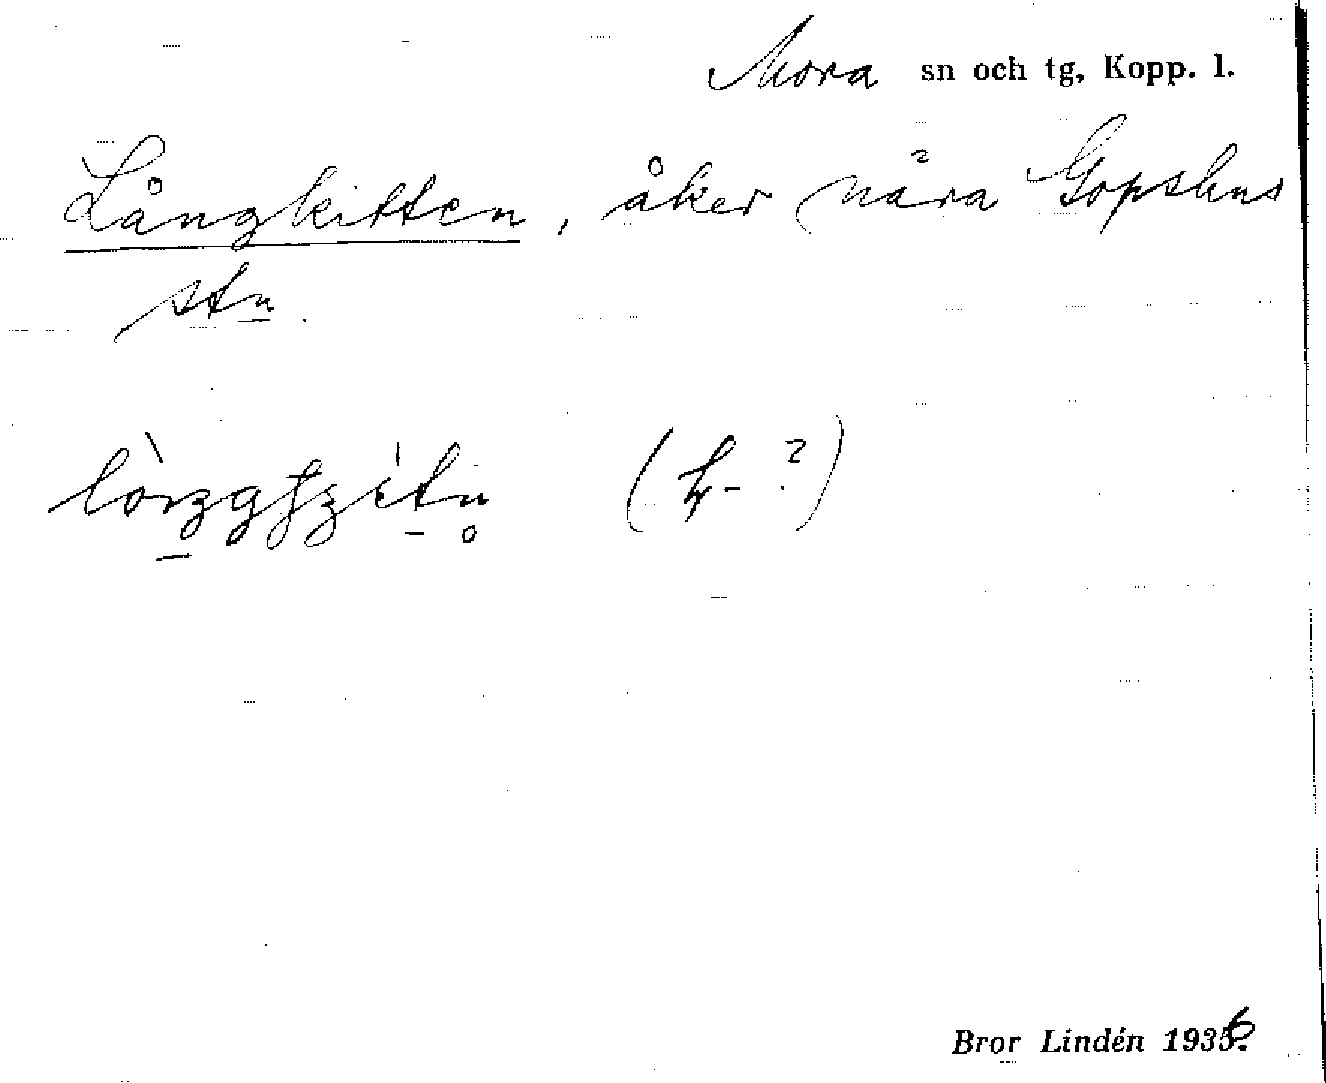 Mora sn och tg, Kopp. l.
Långkitten, åker nära Gopshus
stn.
(k- ?)
Bror Lindén 1936.